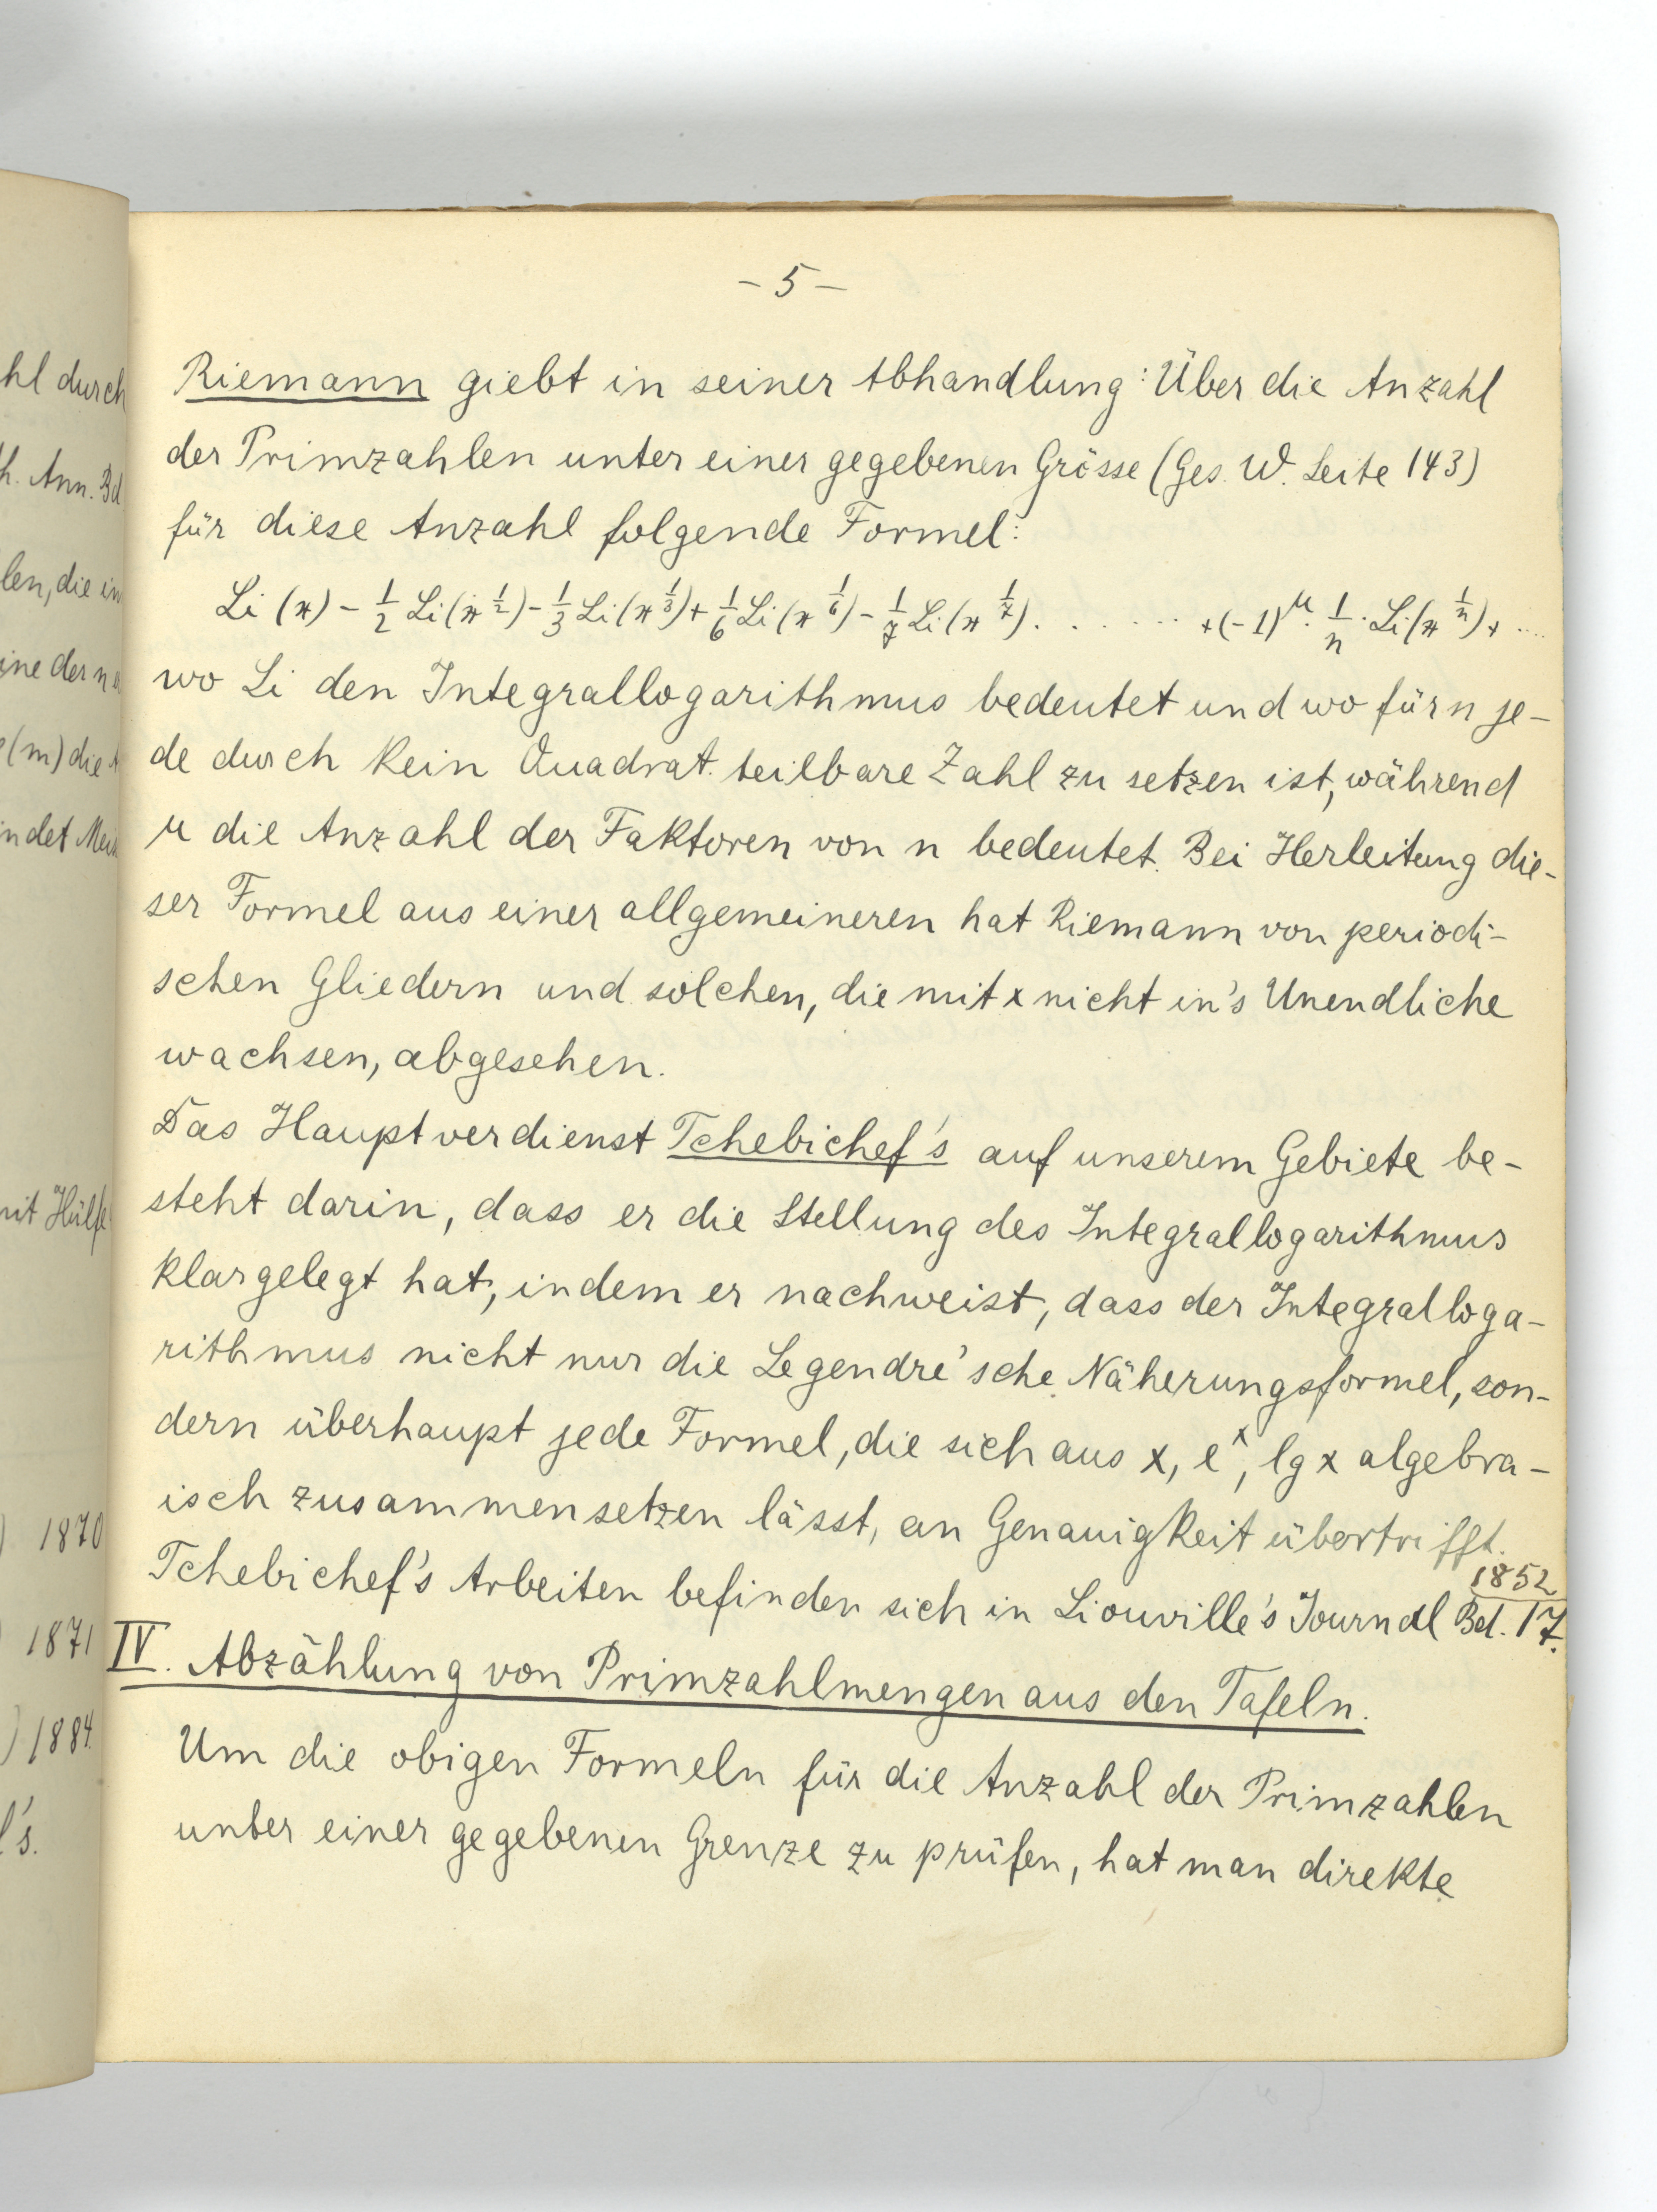 - 5 -
Riemann giebt in seiner Abhandlung: Über die Anzahl
der Primzahlen unter einer gegebenen Grösse (Ges. W. Seite 143)
für diese Anzahl folgende Formel:
Li (x) - 1/2 Li(x^1/2) - 1/3 Li(x^1/3) + 1/6 Li(x^1/6) - 1/7 Li(x^1/7) . . . . . . . +(-1)^μ · 1/n · Li(x^1/n) + ....
wo Li den Integrallogarithmus bedeutet und wo für n je-
de durch kein Quadrat teilbare Zahl zu setzen ist, während
μ die Anzahl der Faktoren von n bedeutet. Bei Herleitung die-
ser Formel aus einer allgemeineren hat Riemann von periodi-
schen Gliedern und solchen, die mit x nicht in's Unendliche
wachsen, abgesehen.
Das Hauptverdienst Tchebichef's auf unserem Gebiete be-
steht darin, dass er die Stellung des Integrallogarithmus
klargelegt hat, indem er nachweist, dass der Integralloga-
rithmus nicht nur die Legendre'sche Näherungsformel, son-
dern überhaupt jede Formel, die sich aus x, e^x, lg x algebra-
isch zusammensetzen lässt, an Genauigkeit übertrifft.
1852
Tchebichef's Arbeiten befinden sich in Liouville's Journal Bd. 17.
IV. Abzählung von Primzahlmengen aus den Tafeln.
Um die obigen Formeln für die Anzahl der Primzahlen
unter einer gegebenen Grenze zu prüfen, hat man direkte
hl durch
h. Ann. Bd
len, die in
ine der n
(m) die
ndet
mit Hülfe
) 1870
) 1871
) 1884
l's.